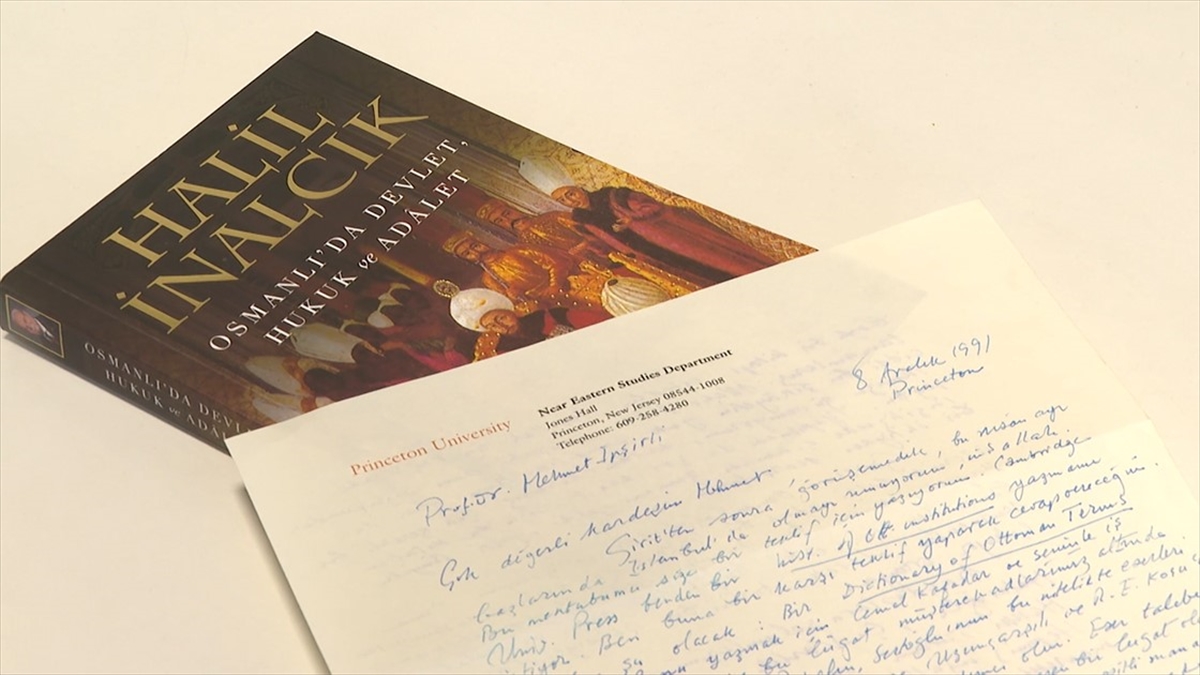 HALİL
İNALCIK
OSMANLI'DA DEVLET,
HUKUK ve ADÂLET
OSMANLI'DA DEVL
HUKUK ve ADÂL
Princeton University
Near Eastern Studies Department
Jones Hall
Princeton, New Jersey 08544-1008
Telephone: 609-258-4280
8 Aralık 1991
Princeton
Prof. Dr. Mehmet İpşirli
Çok değerli kardeşim Mehmet
Girit'ten sonra görüşemedik, bu nisan ayı
başlarında İstanbul'da olmayı umuyorum, inşallah.
Bu mektubumu size bir teklif için yazıyorum. Cambridge
Univ. Press benden bir hist. of Ott. institutions yazmamı
istiyor. Ben buna bir karşı teklif yaparak cevap vereceğim.
şu olacak: Bir Dictionary of Ottoman Terms
yazmak için Cemal Kafadar ve seninle iş
bu lûgat müşterek adlarımız altında
Sertoğlu'nun bu nitelikte eserleri.
Uzunçarşılı ve R. E. Koçu,
olur. Eser talebe
bir lûgat